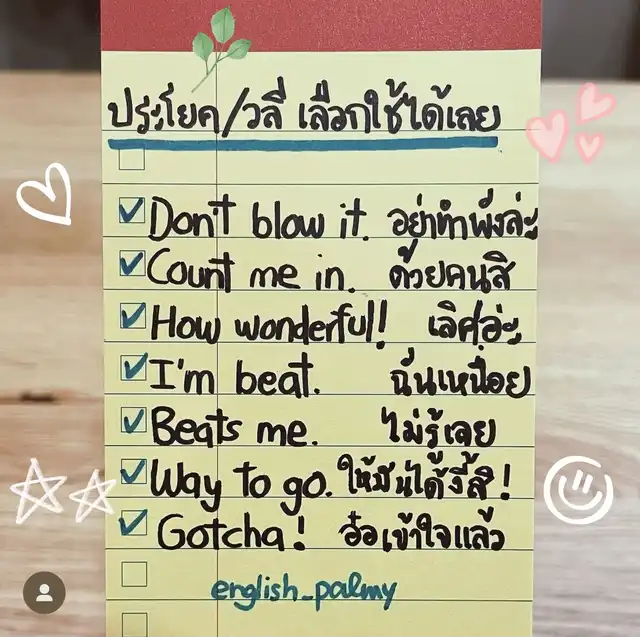 ประโยค/วลี เลือกใช้ได้เลย
Don't blow it. อย่าทำพังล่ะ
Count me in. ด้วยคนสิ
How wonderful! เลิศอ่ะ
I'm beat. ฉันเหนื่อย
Beats me. ไม่รู้เลย
Way to go. ให้มันได้งี้สิ!
Gotcha! อ๋อเข้าใจแล้ว
english_palmy